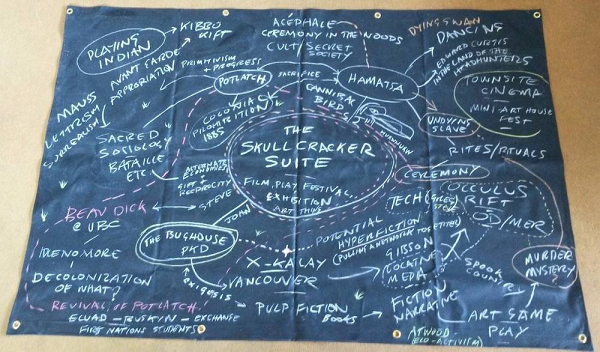 KIBBO
KIFT
PLAYING
INDIAN
AVANT GARDE
APPROPRIATION
PRIMITIVISM
+ PROGRESS
POTLATCH
SACRIFICE
ACÉPHALE
CEREMONY IN THE WOODS
CULT/SECRET
SOCIETY
DYING SWAN
DANCING
EDWARD CURTIS
IN THE LAND OF THE
HEADHUNTERS
HAMATSA
CANNIBAL
BIRDS
TOWNSITE
CINEMA
MINI ART HOUSE
FEST
MAUSS
LETTRISM
SURREALISM
SACRED
SOCIOLOGY
BATAILLE
ETC
1885
THE
SKULLCRACKER
SUITE
FILM, PLAY, FESTIVAL
EXHIBITION
ART THING
UNDYING
SLAVE
RITES/RITUALS
CEREMONY
ALTERNATE
ECONOMIES
GIFT +
RECIPROCITY
STEVE
JOHN
BEAU DICK
@ UBC
THE BUGHOUSE
PKD
IDLE NO MORE
DECOLONIZATION
OF WHAT?
REVIVAL OF POTLATCH
EXEGESIS
X-KALAY
VANCOUVER
PULP FICTION
BOOKS
POTENTIAL
HYPERFICTION
TECH
OCCULUS
RIFT
OD/MER
GIBSON
LOCATIVE
MEDIA
SPOOK
COUNTRY
MURDER
MYSTERY?
FICTION
NARRATIVE
ART GAME
PLAY
ATWOOD
EXCHANGE
FIRST NATIONS STUDENTS